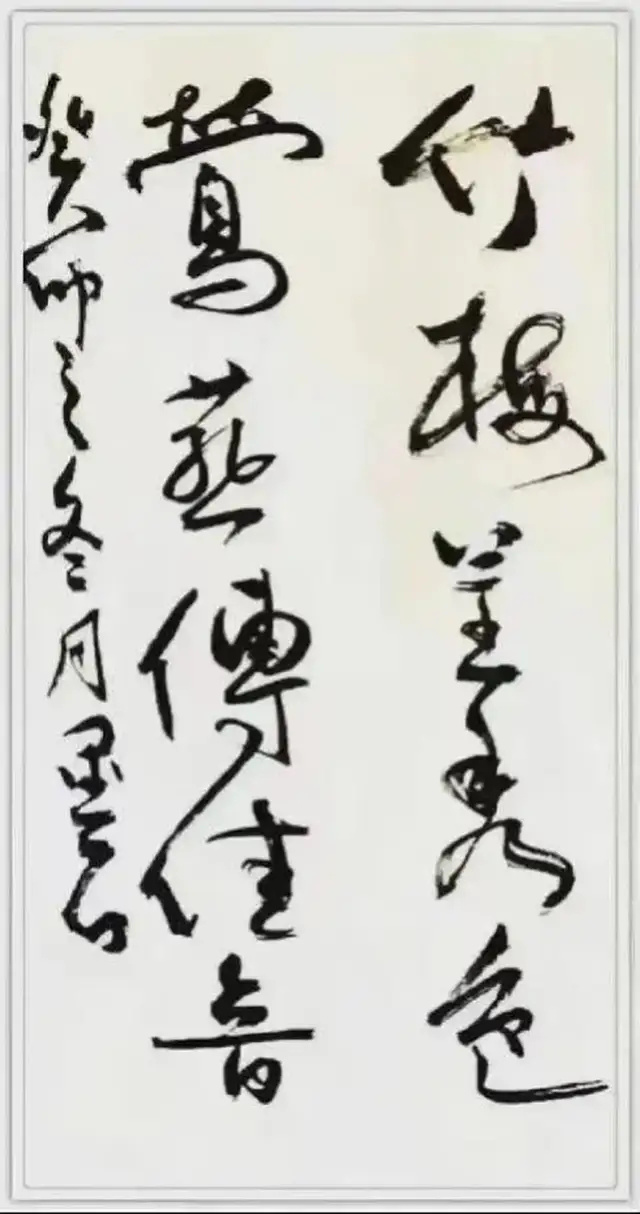 竹梅呈秀色
鶯燕傳佳音
癸卯之冬月